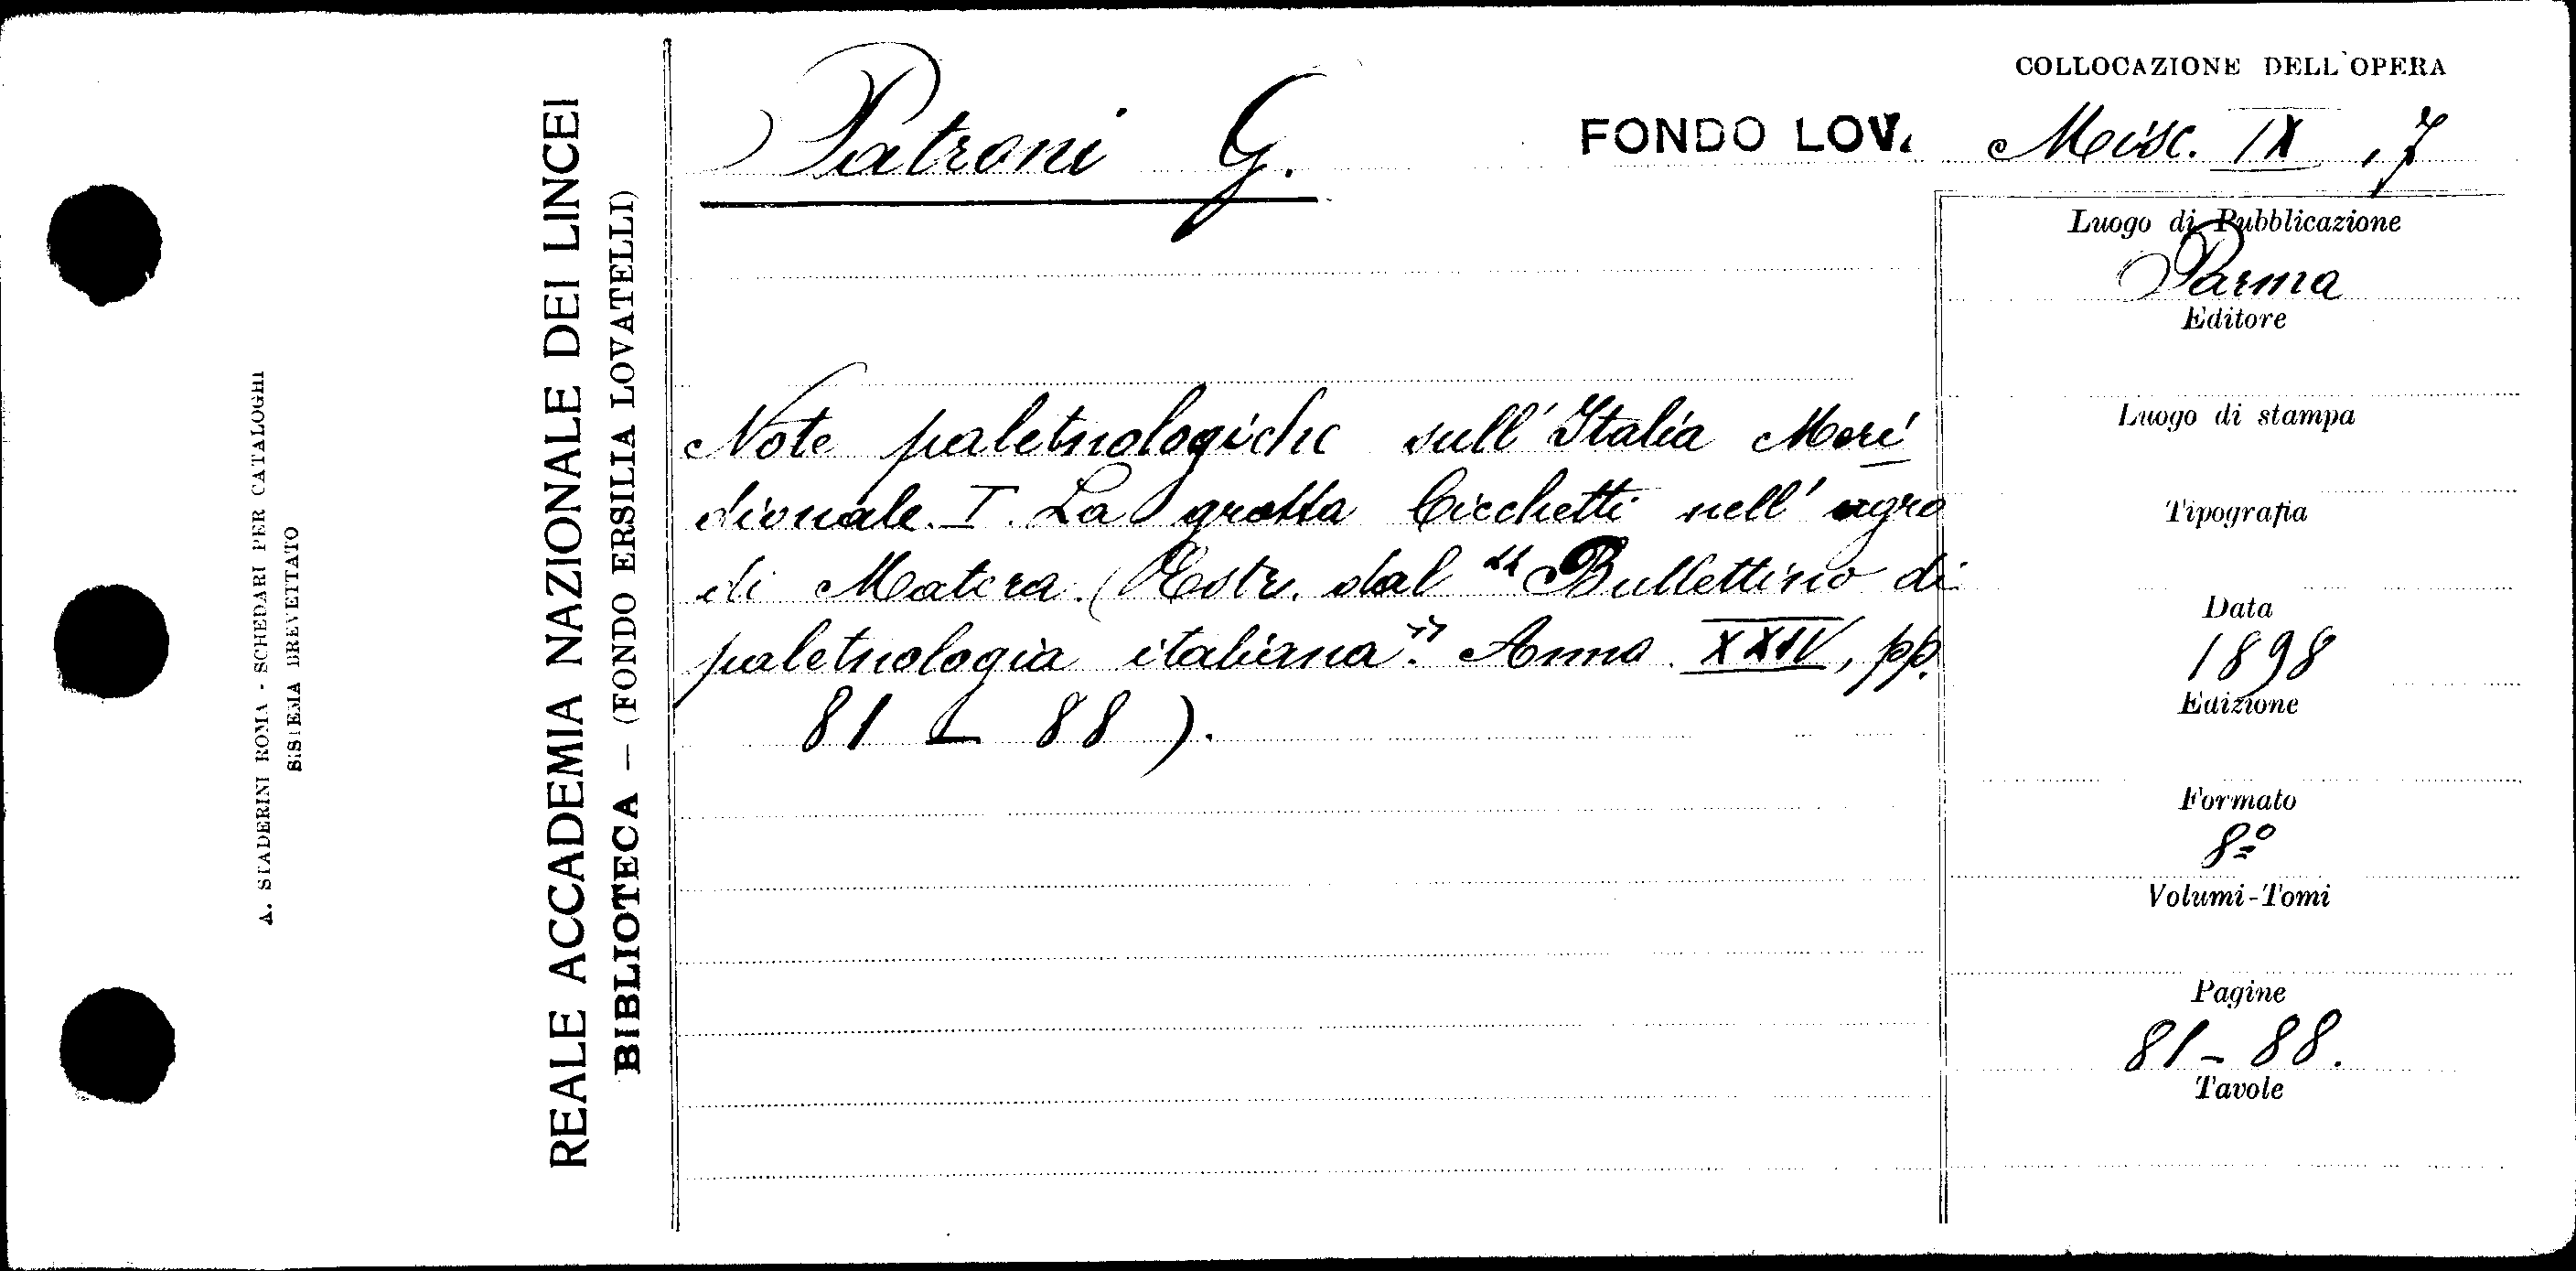 A. STADERINI ROMA - SCHEDARI PER CATALOGHI
SISTEMA BREVETTATO
REALE ACCADEMIA NAZIONALE DEI LINCEI
BIBLIOTECA — (FONDO ERSILIA LOVATELLI)
Patroni G.
FONDO LOV.
Note paletnologiche sull'Italia Meri
dionale. I. La grotta Cicchetti nell'agro
di Matera. (Estr. dal "Bullettino di
paletnologia italiana". Anno XXIV, pp.
81 - 88).
COLLOCAZIONE DELL'OPERA
Misc. IX, 7
Luogo di Pubblicazione
Parma
Editore
Luogo di stampa
Tipografia
Data
1898
Edizione
Formato
8º
Volumi-Tomi
Pagine
81-88.
Tavole